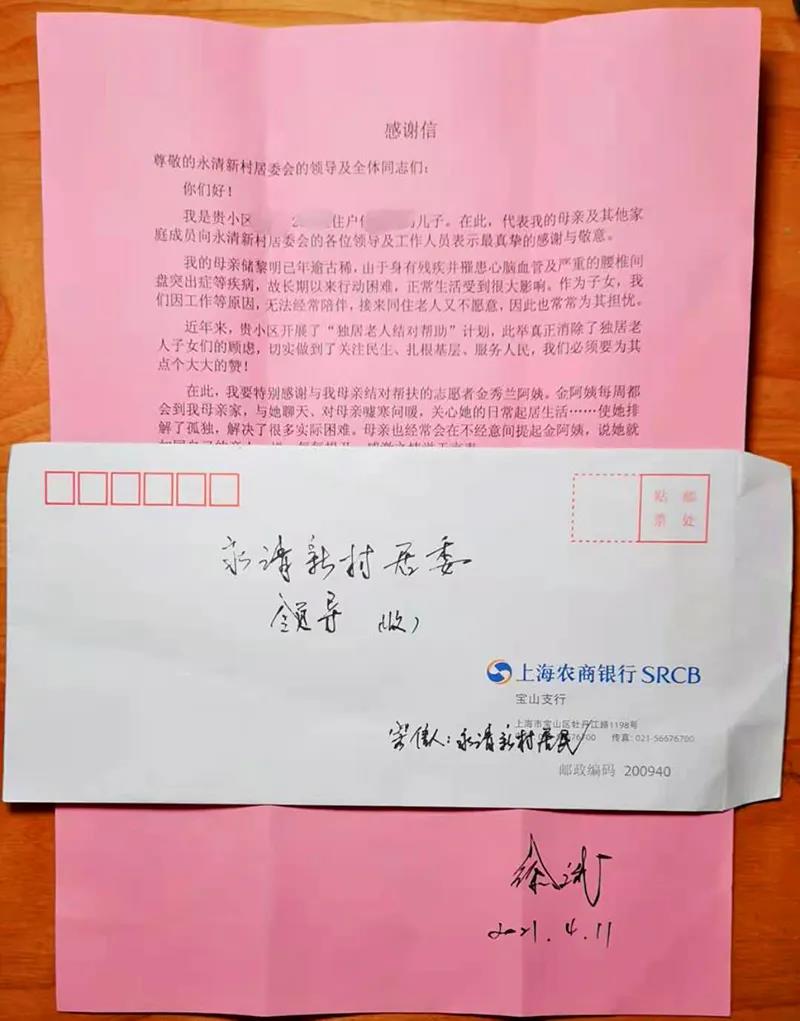 感谢信
尊敬的永清新村居委会的领导及全体同志们：
你们好！
我是贵小区 住户 儿子。在此，代表我的母亲及其他家
庭成员向永清新村居委会的各位领导及工作人员表示最真挚的感谢与敬意。
我的母亲储黎明已年逾古稀，由于身有残疾并罹患心脑血管及严重的腰椎间
盘突出症等疾病，故长期以来行动困难，正常生活受到很大影响。作为子女，我
们因工作等原因，无法经常陪伴，接来同住老人又不愿意，因此也常常为其担忧。
近年来，贵小区开展了“独居老人结对帮助”计划，此举真正消除了独居老
人子女们的顾虑，切实做到了关注民生、扎根基层、服务人民，我们必须要为其
点个大大的赞！
在此，我要特别感谢与我母亲结对帮扶的志愿者金秀兰阿姨。金阿姨每周都
会到我母亲家，与她聊天、对母亲嘘寒问暖，关心她的日常起居生活……使她排
解了孤独，解决了很多实际困难。母亲也经常会在不经意间提起金阿姨，说她就
贴 邮
票 处
永清新村居委
领导（收）
上海农商银行 SRCB
宝山支行
上海市宝山区牡丹江路1198号
76700 传真：021-56676700
寄信人：永清新村居民
邮政编码 200940
2021.4.11